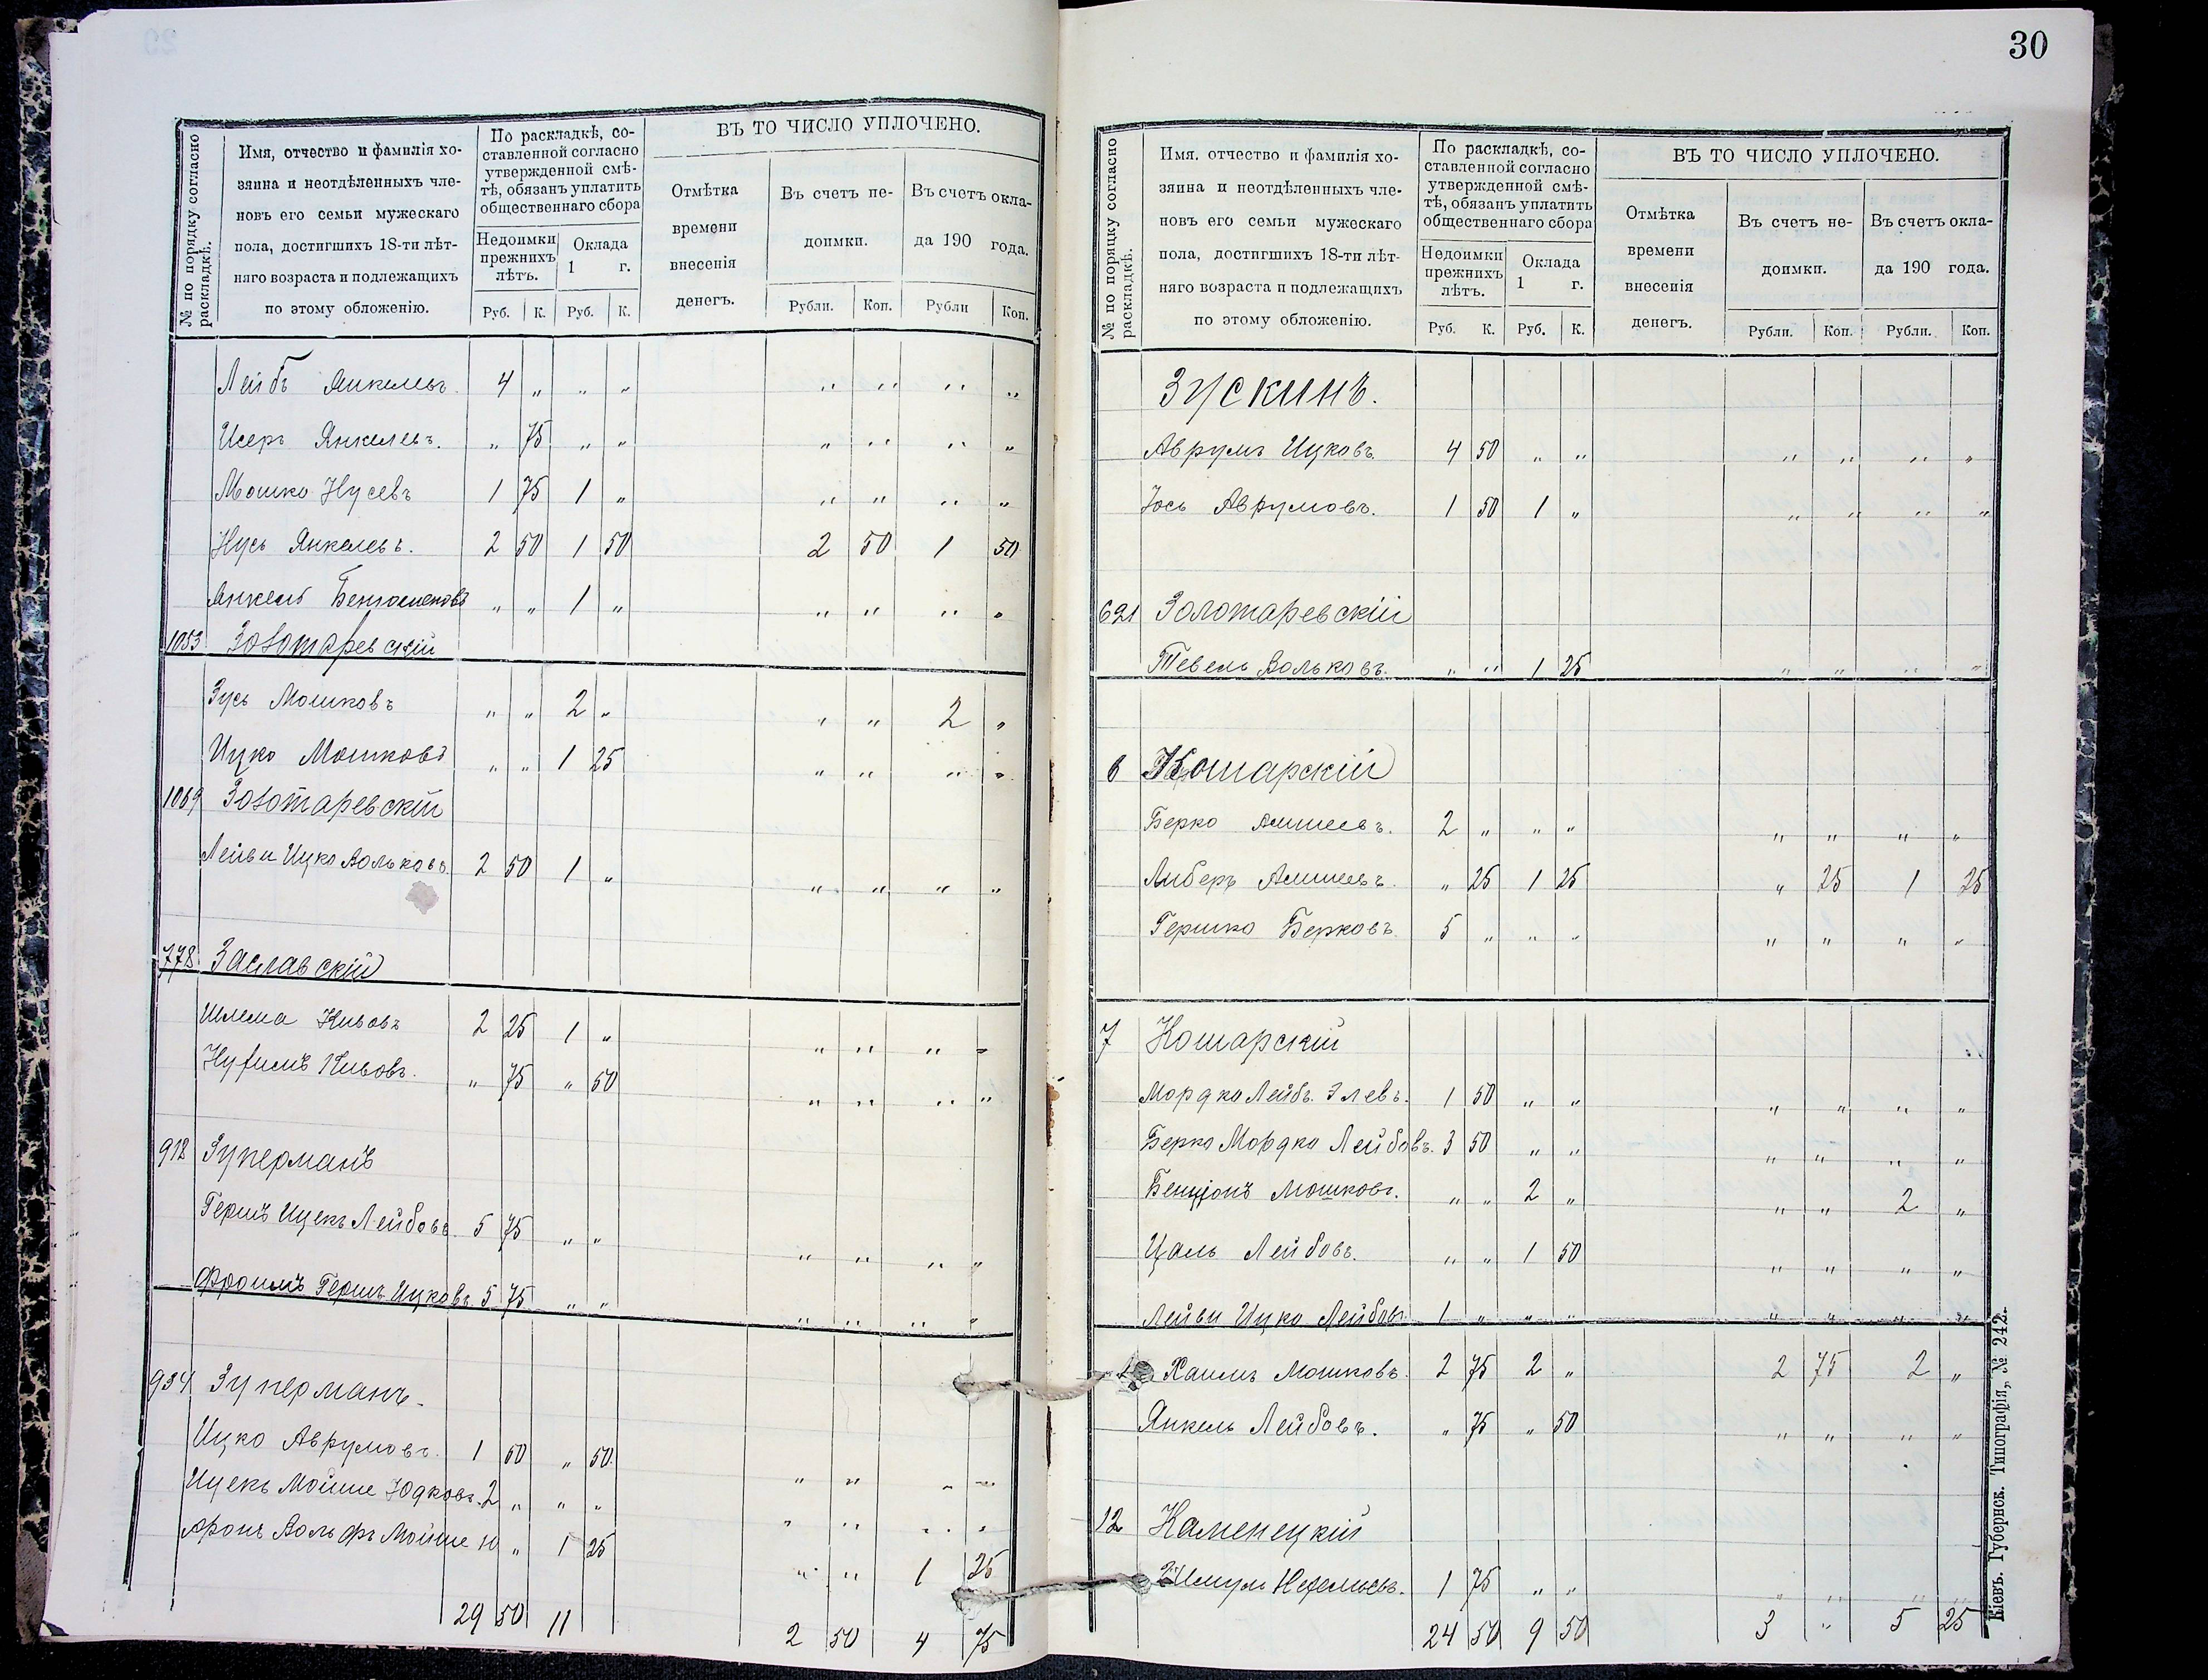 № по порядку согласно раскладкѣ.
Имя, отчество и фамилія хо-
зяина и неотдѣленныхъ чле-
новъ его семьи мужескаго
пола, достигшихъ 18-ти лѣт-
няго возраста и подлежащихъ
по этому обложенію.
По раскладкѣ, со-
ставленной согласно
утвержденной смѣ-
тѣ, обязанъ уплатить
общественнаго сбора
Недоимки прежнихъ лѣтъ.
Оклада 1 г.
Руб. К. Руб. К.
ВЪ ТО ЧИСЛО УПЛОЧЕНО.
Отмѣтка времени внесенія денегъ.
Въ счетъ не-
доимки.
Въ счетъ окла-
да 190 года.
Рубли. Коп. Рубли Коп.
Лейбъ Янкелевъ 4 „ „ „ „ „ „ „
Исеръ Янкелевъ. „ 75 „ „ „ „ „ „
Мошко Нусевъ 1 75 1 „ „ „ „ „
Нусь Янкелевъ. 2 50 1 50 2 50 1 50
Янкель „ „ 1 „ „ „ „ „
1053 Золотаревскій
Зусь Мошковъ „ „ 2 „ „ „ 2 „
Ицко Мошковъ „ „ 1 25 „ „ „ „
1069 Золотаревскій
Лейви Ицко Вольковъ 2 50 1 „ „ „ „ „
778 Заславскій
Шлема Кивовъ 2 25 1 „ „ „ „ „
Нухимъ Кивовъ. „ 75 „ 50 „ „ „ „
912 Зуперманъ
Гершъ Ицекъ Лейбовъ 5 75 „ „ „ „ „ „
Фроимъ Гершъ Ицковъ 5 75 „ „ „ „ „ „
934 Зуперманъ.
Ицко Аврумовъ. 1 50 „ 50 „ „ „ „
Ицекъ Мойше Юдковъ. 2 „ „ „ „ „ „ „
Аронъ Вольфъ Мойше Ю „ 1 25 „ „ 1 25
29 50 11 2 50 4 75
30
№ по порядку согласно раскладкѣ.
Имя. отчество и фамилія хо-
зяина и неотдѣленныхъ чле-
новъ его семьи мужескаго
пола, достигшихъ 18-ти лѣт-
няго возраста и подлежащихъ
по этому обложенію.
По раскладкѣ, со-
ставленной согласно
утвержденной смѣ-
тѣ, обязанъ уплатить
общественнаго сбора
Недоимки прежнихъ лѣтъ.
Оклада 1 г.
Руб. К. Руб. К.
ВЪ ТО ЧИСЛО УПЛОЧЕНО.
Отмѣтка времени внесенія денегъ.
Въ счетъ не-
доимки.
Въ счетъ окла-
да 190 года.
Рубли. Коп. Рубли. Коп.
Зускинъ.
Аврумъ Ицковъ. 4 50 „ „ „ „ „ „
Іось Аврумовъ. 1 50 1 „ „ „ „ „
621 Золотаревскій
Тевель Вольковъ. „ „ 1 25 „ „ „ „
6 Кошарскій
Берко 2 „ „ „ „ „ „ „
Либеръ „ 25 1 25 „ 25 1 25
Гершко Берковъ. 5 „ „ „ „ „ „ „
7 Кошарскій
Мордко Лейбъ Элевъ. 1 50 „ „ „ „ „ „
Берко Мордко Лейбовъ. 3 50 „ „ „ „ „ „
Бенціонъ Мошковъ. „ „ 2 „ „ „ 2 „
Цаль Лейбовъ. „ „ 1 50 „ „ „ „
Лейви Ицко Лейбовъ. 1 „ „ „ „ „ „ „
Хаимъ Мошковъ. 2 75 2 „ 2 75 2 „
Янкель Лейбовъ. „ 75 „ 50 „ „ „ „
12 Каменецкій
Шмуль 1 75 „ „ „ „ „ „
24 50 9 50 3 „ 5 25
Кіевъ. Губернск. Типографія, № 242.